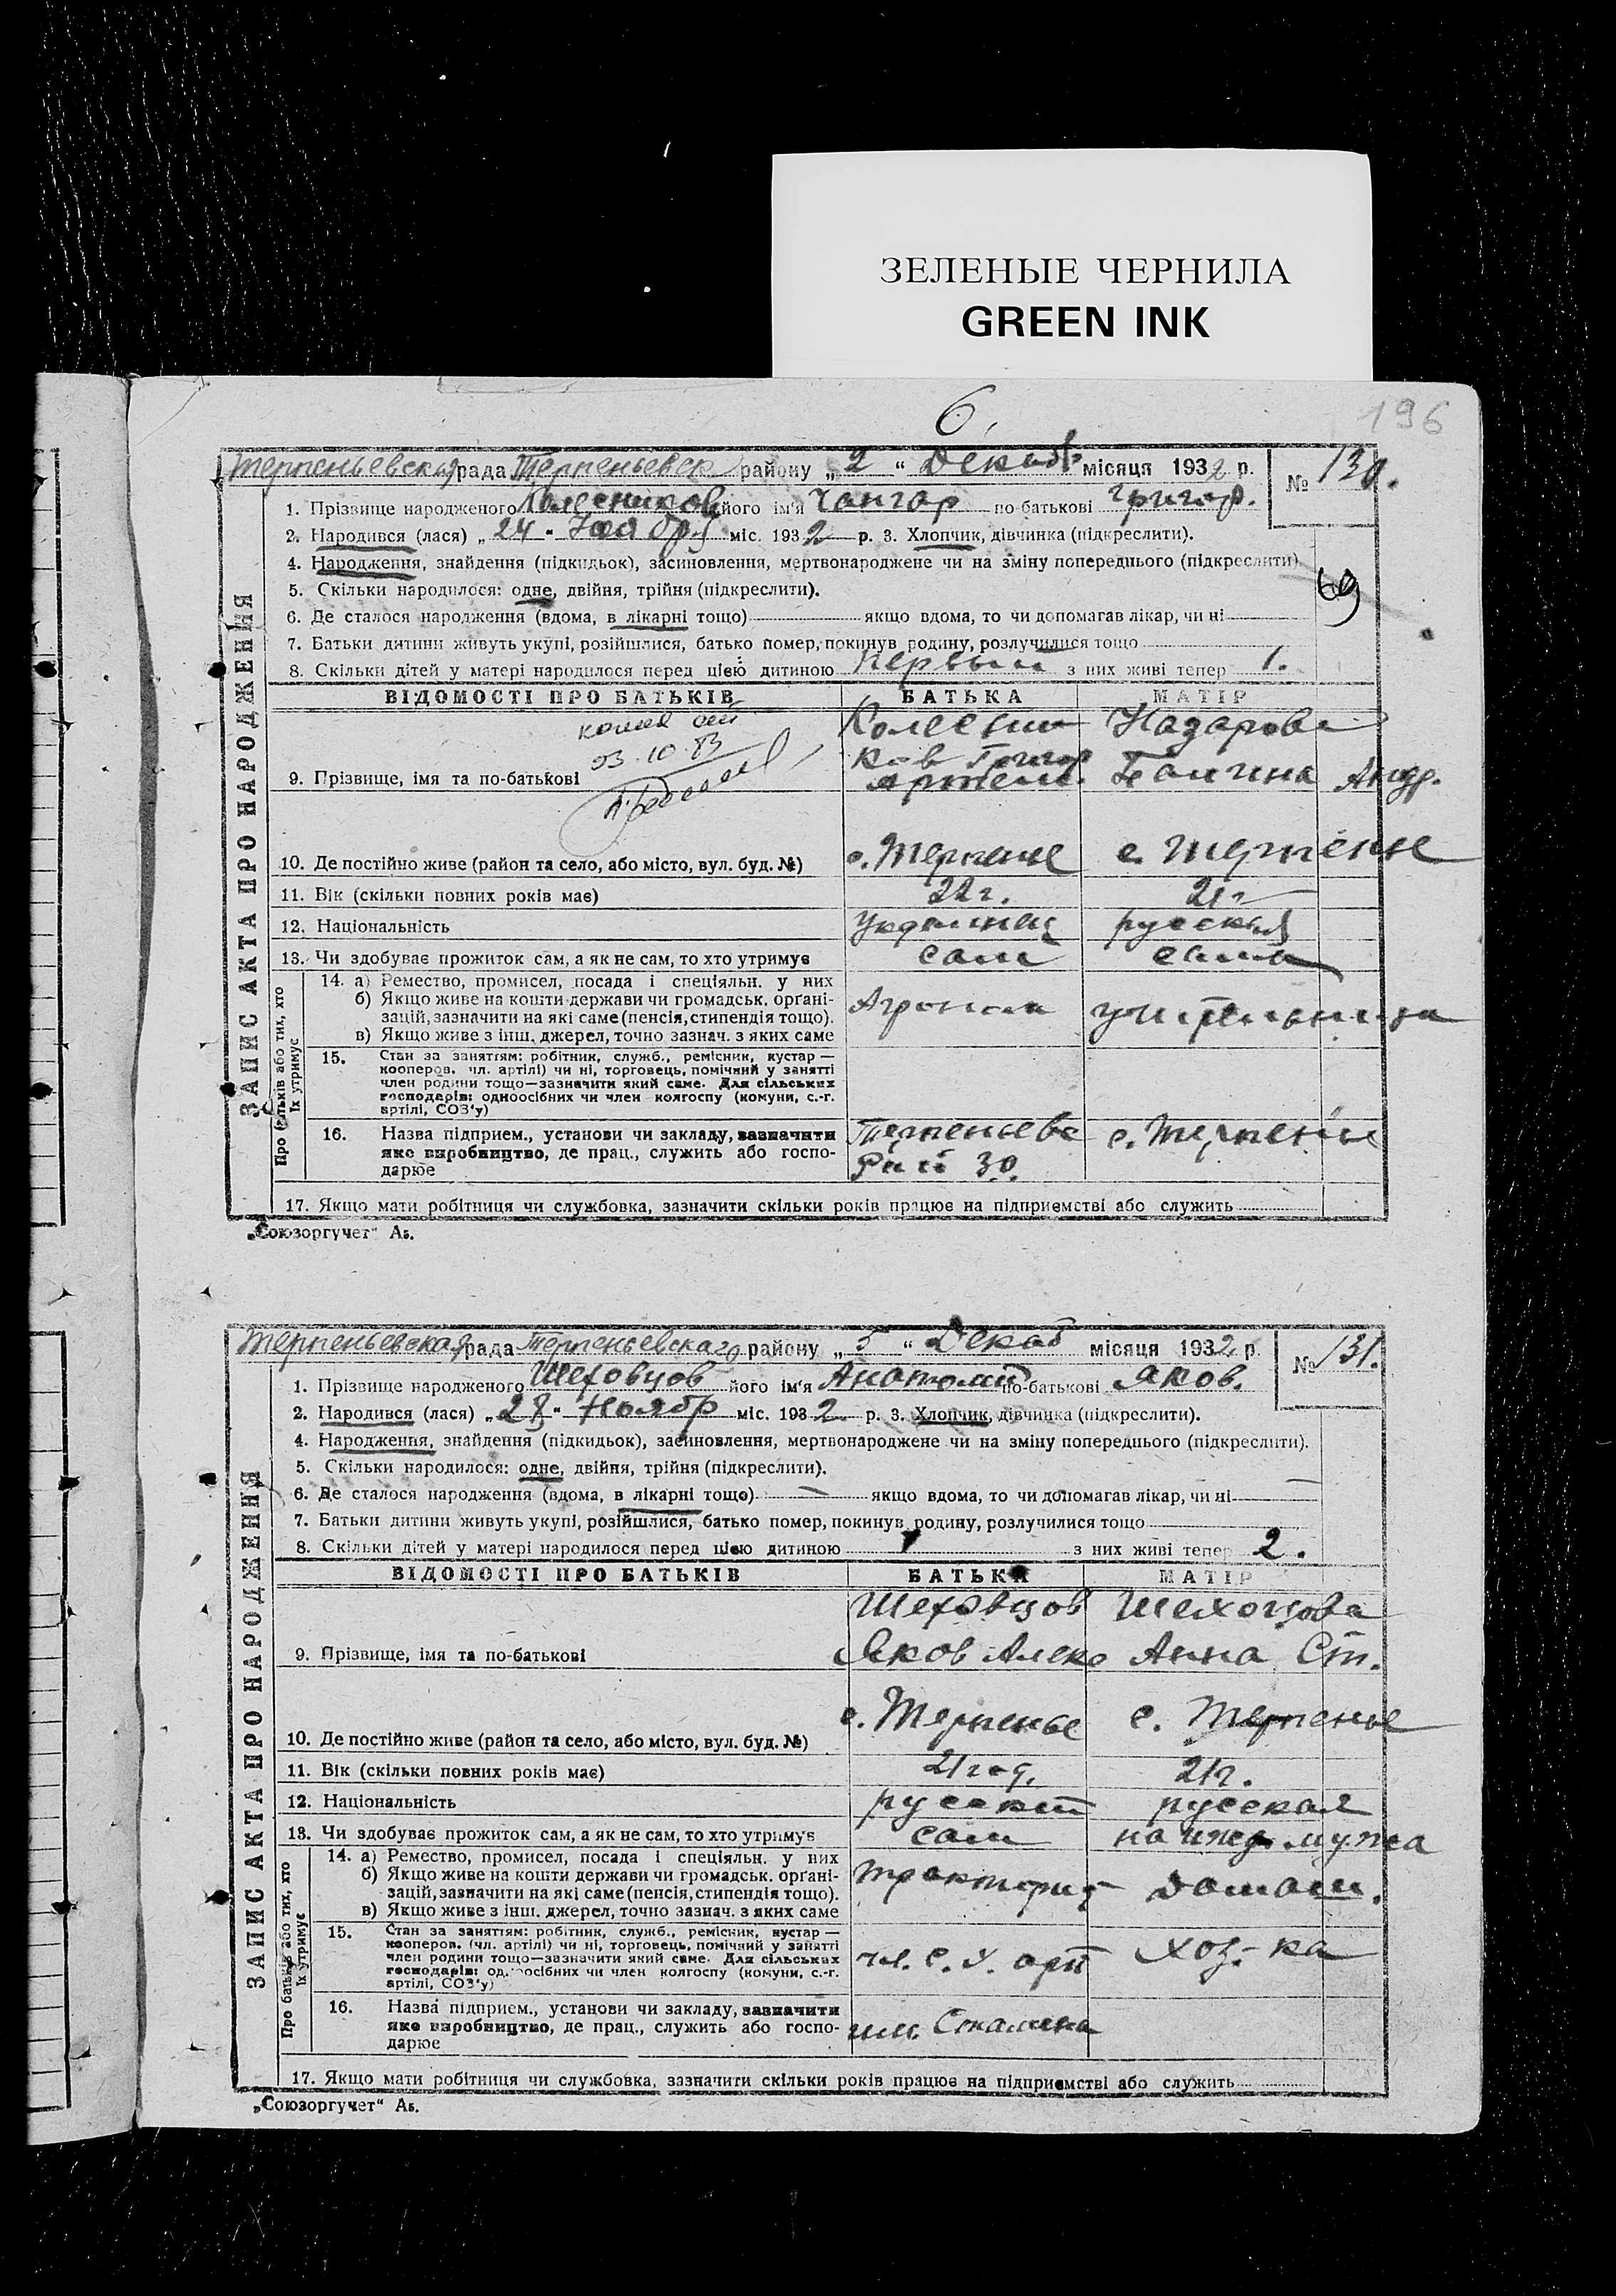 ЗЕЛЕНЫЕ ЧЕРНИЛА
GREEN INK
6.
196
Терпеньевская рада Терпеньевск району „2“ Декаб. місяця 1932 р. № 130.
1. Прізвище народженого Колесников його ім'я Чангар по-батькові Григор.
2. Народився (лася) „24“ Ноября міс. 1932 р. 3. Хлопчик, дівчинка (підкреслити).
4. Народження, знайдення (підкидьок), засиновлення, мертвонароджене чи на зміну попереднього (підкреслити)
69
5. Скільки народилося: одне, двійня, трійня (підкреслити).
6. Де сталося народження (вдома, в лікарні тощо) якщо вдома, то чи допомагав лікар, чи ні
7. Батьки дитини живуть укупі, розійшлися, батько помер, покинув родину, розлучилися тощо
8. Скільки дітей у матері народилося перед цією дитиною первый з них живі тепер 1.
ВІДОМОСТІ ПРО БАТЬКІВ БАТЬКА МАТІР
03.10.83
Колесни Назарова
ков Григор
9. Прізвище, імя та по-батькові Артем. Галина Андр.
10. Де постійно живе (район та село, або місто, вул. буд. №) с. Терпенье с. Терпенье
11. Вік (скільки повних років має) 22 г. 21 г
12. Національність Украинец русская
13. Чи здобуває прожиток сам, а як не сам, то хто утримує сам сама
14. а) Ремество, промисел, посада і спеціяльн. у них
б) Якщо живе на кошти держави чи громадськ. орґані-
зацій, зазначити на які саме (пенсія, стипендія тощо). Агроном учительница
в) Якщо живе з інш. джерел, точно зазнач. з яких саме
15. Стан за заняттям: робітник, служб., ремісник, кустар—
кооперов. чл. артілі) чи ні, торговець, помічний у занятті
член родини тощо—зазначити який саме. Для сільських
господарів: одноосібних чи член колгоспу (комуни, с.-г.
артілі, СОЗ'у)
16. Назва підприєм., установи чи закладу, зазначити Терпеньевс с. Терпенье
яке виробництво, де прац., служить або госпо-
дарює
17. Якщо мати робітниця чи службовка, зазначити скільки років працює на підприємстві або служить
ЗАПИС АКТА ПРО НАРОДЖЕННЯ
Про батьків або тих, хто
їх утримує
„Союзоргучет“ Аб.
Терпеньевская рада Терпеньевскаго району „5“ Декаб місяця 1932 р. № 131.
1. Прізвище народженого Шеховцов його ім'я Анатолий по-батькові Яков.
2. Народився (лася) „28“ Ноябр міс. 1932 р. 3. Хлопчик, дівчинка (підкреслити).
4. Народження, знайдення (підкидьок), засиновлення, мертвонароджене чи на зміну попереднього (підкреслити).
5. Скільки народилося: одне, двійня, трійня (підкреслити).
6. Де сталося народження (вдома, в лікарні тощо) якщо вдома, то чи допомагав лікар, чи ні
7. Батьки дитини живуть укупі, розійшлися, батько помер, покинув родину, розлучилися тощо
8. Скільки дітей у матері народилося перед цією дитиною 1 з них живі тепер 2.
ВІДОМОСТІ ПРО БАТЬКІВ БАТЬКА МАТІР
Шеховцов Шехоцова
9. Прізвище, імя та по-батькові Яков Алекс Анна Ст.
10. Де постійно живе (район та село, або місто, вул. буд. №) с. Терпенье с. Терпенье
11. Вік (скільки повних років має) 21 год. 21 г.
12. Національність русский русская
13. Чи здобуває прожиток сам, а як не сам, то хто утримує сам на ижд. мужа
14. а) Ремество, промисел, посада і спеціяльн. у них
б) Якщо живе на кошти держави чи громадськ. орґані-
зацій, зазначити на які саме (пенсія, стипендія тощо). тракторист Домаш.
в) Якщо живе з інш. джерел, точно зазнач. з яких саме
15. Стан за заняттям: робітник, служб., ремісник, кустар—
кооперов. (чл. артілі) чи ні, торговець, помічний у занятті
член родини тощо—зазначити який саме. Для сільських чл. с. х. арт хоз-ка
господарів: одноосібних чи член колгоспу (комуни, с.-г.
артілі, СОЗ'у)
16. Назва підприєм., установи чи закладу, зазначити
яке виробництво, де прац., служить або госпо- им. Сталина
дарює
17. Якщо мати робітниця чи службовка, зазначити скільки років працює на підприємстві або служить
ЗАПИС АКТА ПРО НАРОДЖЕННЯ
Про батьків або тих, хто
їх утримує
„Союзоргучет“ Аб.